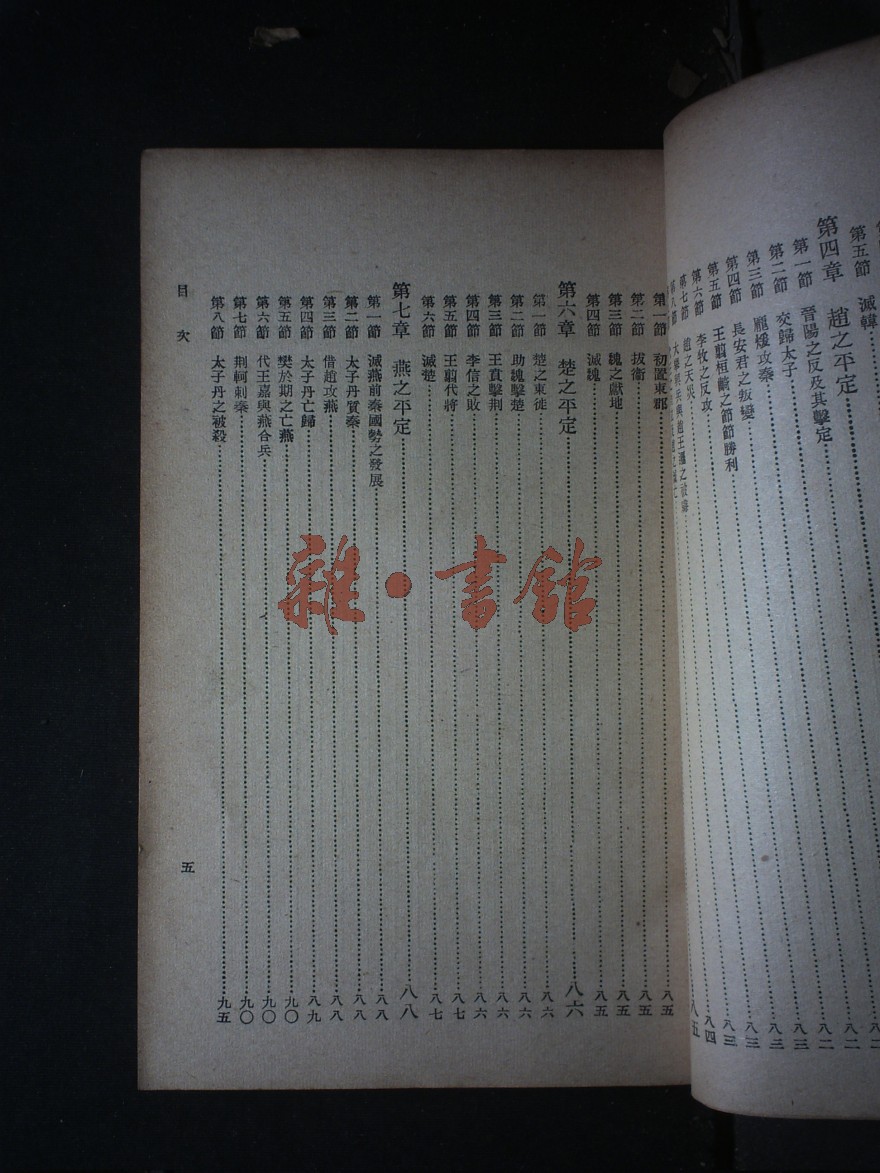 第五節 滅韓 八二
第四章 趙之平定 八二
第一節 晉陽之反及其擊定 八二
第二節 交歸太子 八三
第三節 龐煖攻秦 八三
第四節 長安君之叛變 八三
第五節 王翦桓齮之節節勝利 八三
第六節 李牧之反攻 八四
第七節 趙之天災 八五
第八節
第一節 初置東郡 八五
第二節 拔衞 八五
第三節 魏之獻地 八五
第四節 滅魏 八五
第六章 楚之平定 八六
第一節 楚之東徙 八六
第二節 助魏擊楚 八六
第三節 王賁擊荆 八六
第四節 李信之敗 八六
第五節 王翦代將 八七
第六節 滅楚 八七
第七章 燕之平定 八八
第一節 滅燕前秦國勢之發展 八八
第二節 太子丹質秦 八八
第三節 借趙攻燕 八八
第四節 太子丹亡歸 八九
第五節 樊於期之亡燕 九〇
第六節 代王嘉與燕合兵 九〇
第七節 荆軻刺秦 九〇
第八節 太子丹之被殺 九五
目次 五
雜·書館